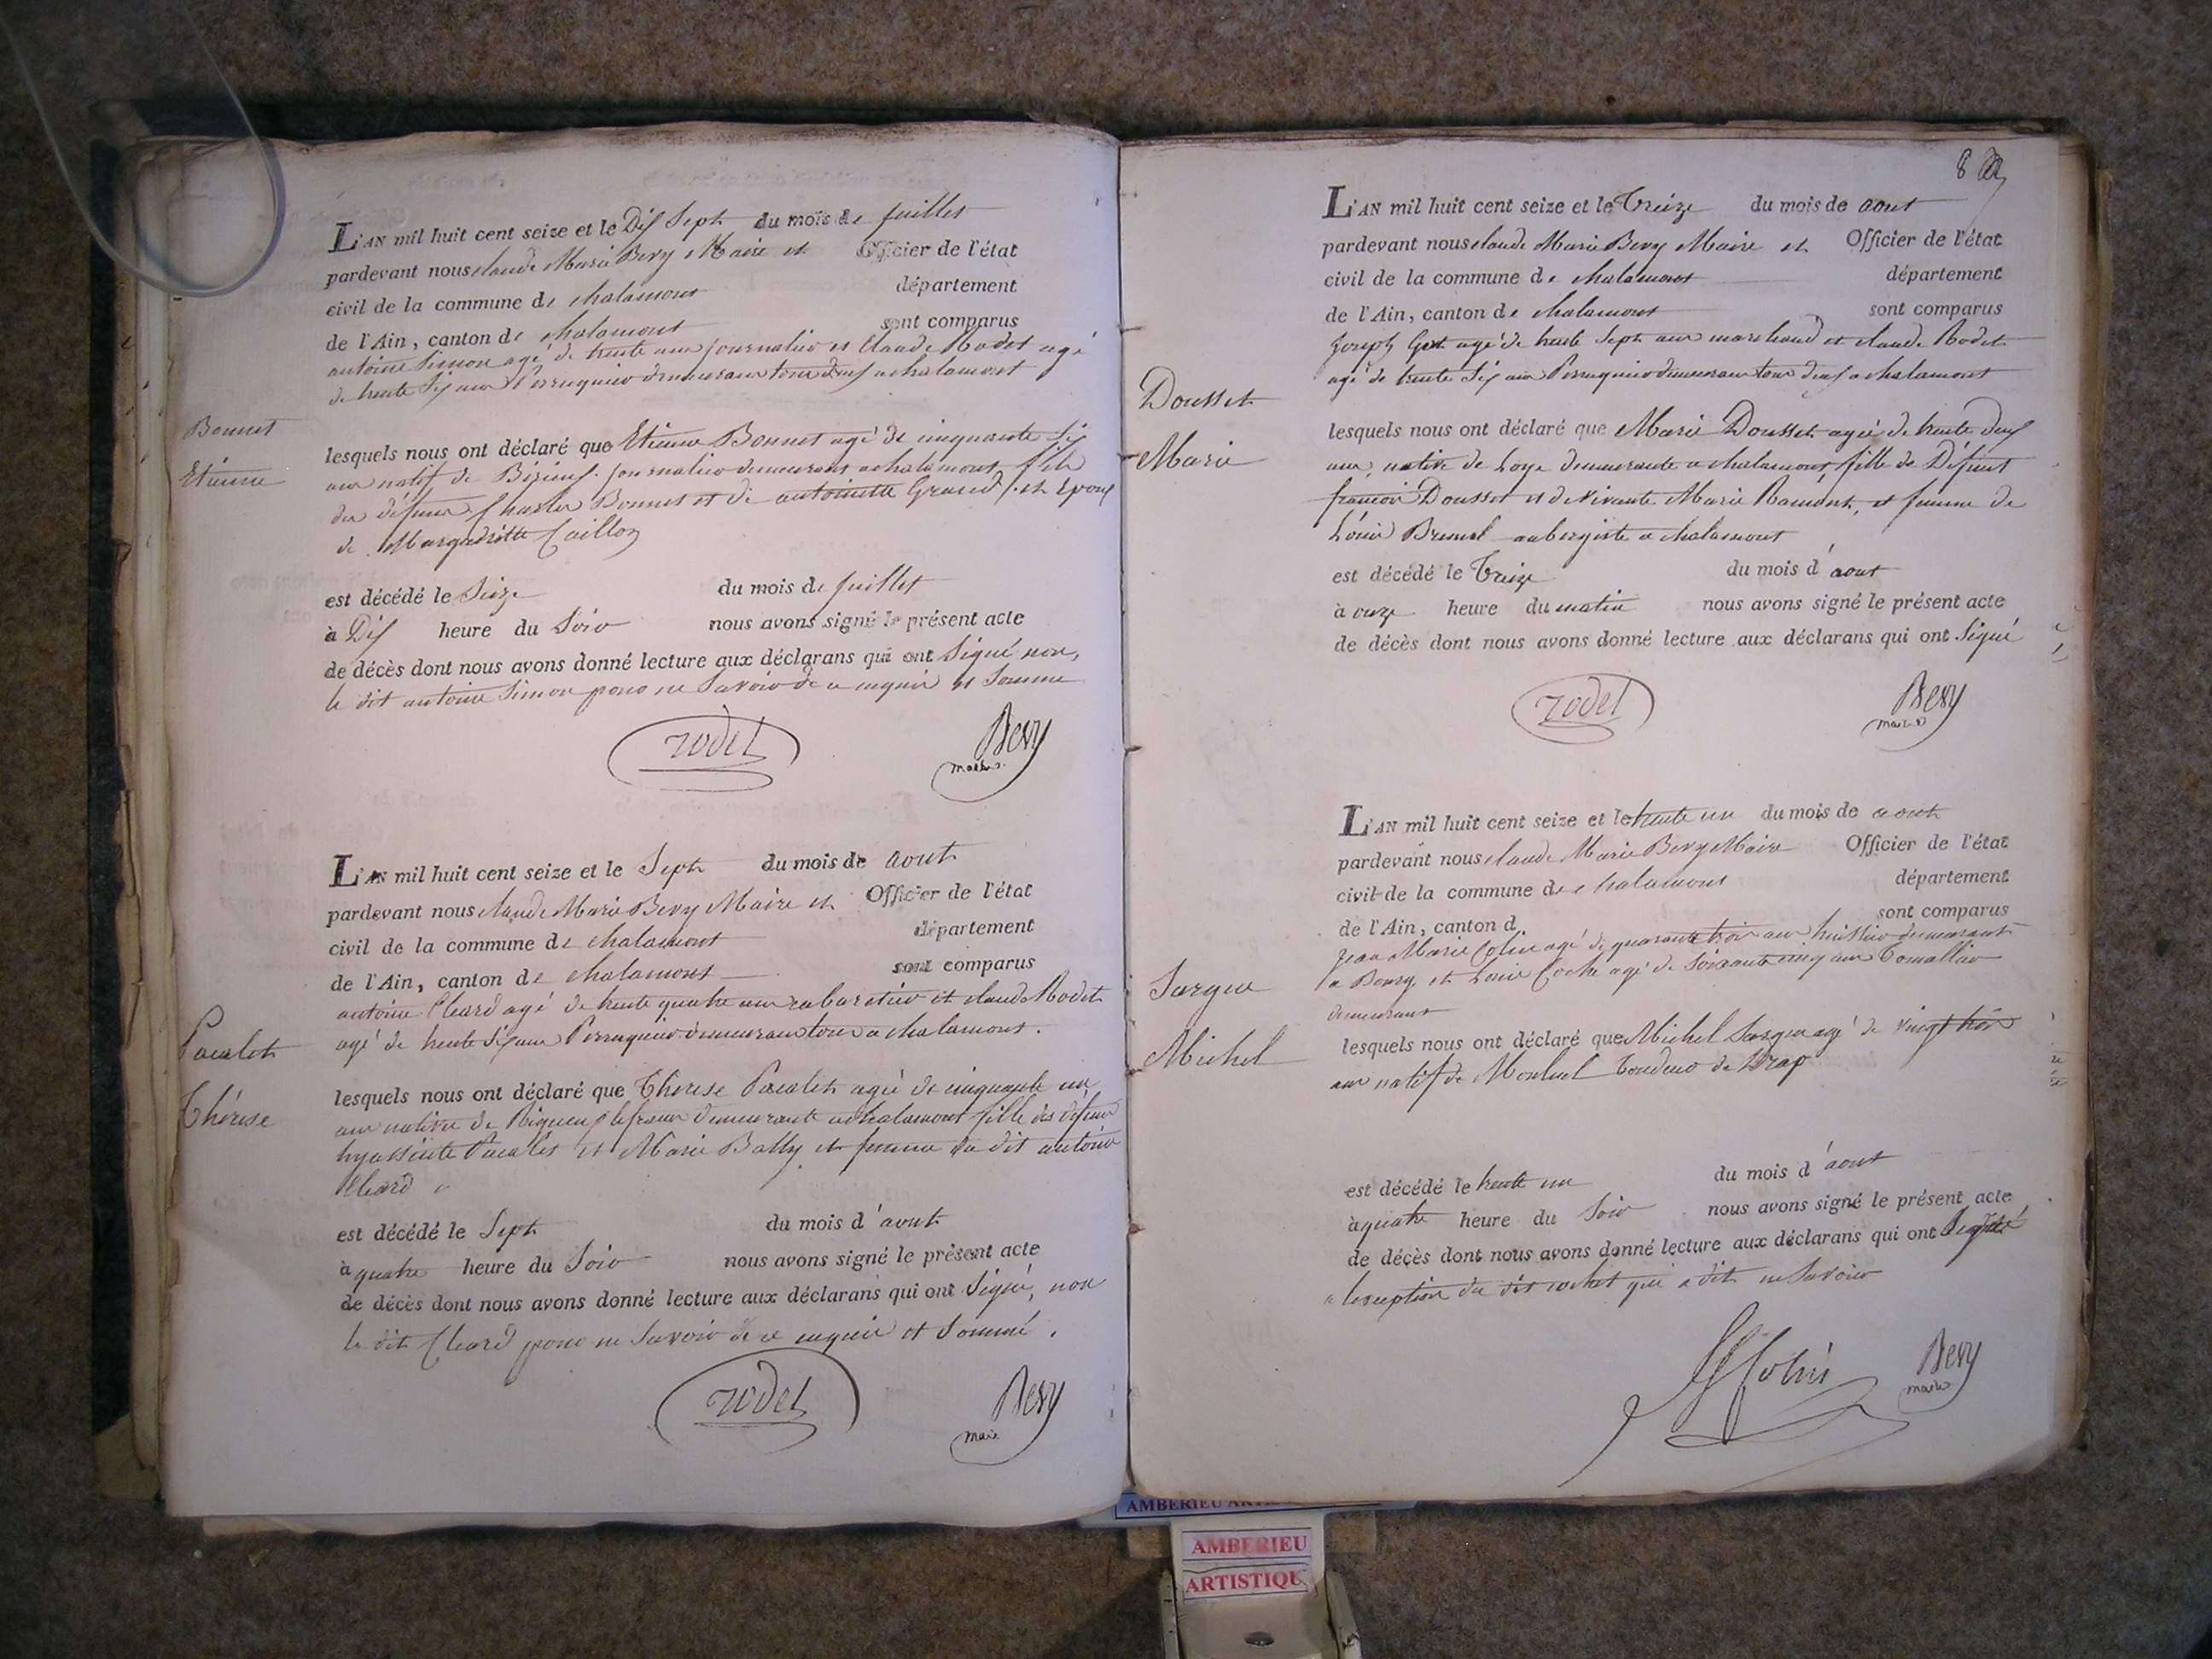 L'AN mil huit cent seize et le Dix Sept du mois de Juillet
pardevant nous claude Marie Bevy Maire et Officier de l'état
civil de la commune de chalamont département
de l'Ain, canton de chalamont sont comparus
antoine Simon agé de trente ans journalier et Claude Rodet agé
de trente Six ans Perruquier demeurans tous deux a chalamont
Bonnet
Etienne
lesquels nous ont déclaré que Etienne Bonnet agé de cinquante Six
ans natif de journalier demeurant a chalamont, fils
des défunts Charles Bonnet et de antoinette Grand, et Epoux
de Marguéritte Caillon
est décédé le Seize du mois de Juillet
à Dix heure du Soir nous avons signé le présent acte
de décès dont nous avons donné lecture aux déclarans qui ont Signé non,
le dit antoine Simon pour ne Savoir de ce enquis et Sommé
rodet
Bevy
maire
L'AN mil huit cent seize et le Sept du mois de aout
pardevant nous claude Marie Bevy Maire et Officier de l'état
civil de la commune de chalamont département
de l'Ain, canton de chalamont sont comparus
antoine Cleard agé de trente quatre ans cabaretier et claude Rodet
agé de trente Six ans Perruquier demeurans tous a chalamont.
Pacalet
Thérèse
lesquels nous ont déclaré que Thérese Pacalet agée de cinquante un
ans native de Rigneux le franc demeurante a chalamont fille des défunts
hyassinte Pacalet et Marie Bally et femme du dit antoine
Cleard
est décédé le Sept du mois d'aout
à quatre heure du Soir nous avons signé le présent acte
de décès dont nous avons donné lecture aux déclarans qui ont Signé, non
le dit Cleard pour ne Savoir de ce enquis et Sommé.
rodet
Bevy
maire
8
L'AN mil huit cent seize et le Treize du mois de aout
pardevant nous claude Marie Bevy Maire et Officier de l'état
civil de la commune de chalamont département
de l'Ain, canton de chalamont sont comparus
Joseph agé de trente Sept ans marchand et claude Rodet
agé de trente Six ans Perruquier demeurans tous deux a chalamont
Dousset
Marie
lesquels nous ont déclaré que Marie Dousset agée de trente deux
ans, native de Loye demeurante a chalamont, fille de Défunt
françois Dousset et de vivante Marie Ramont, et femme de
Louis Brunel aubergiste a chalamont
est décédé le Treize du mois d'aout
à onze heure du matin nous avons signé le présent acte
de décès dont nous avons donné lecture aux déclarans qui ont Signé
rodet
Bevy
maire
L'AN mil huit cent seize et le trente un du mois de aout
pardevant nous claude Marie Bevy Maire Officier de l'état
civil de la commune de chalamont département
de l'Ain, canton d. sont comparus
Jean Marie Colin agé de quarante trois ans huissier demeurant
a Bourg, et Louis Coche agé de Soixante cinq ans Tonallier
demeurant
Sargue
Michel
lesquels nous ont déclaré que Michel Sargue agé de vingt trois
ans natif de Monluel Tondeur de Drap
est décédé le trente un du mois d'aout
à quatre heure du Soir nous avons signé le présent acte
de décès dont nous avons donné lecture aux déclarans qui ont Signé
a lexception du dit cochet qui a dit ne Savoir
Colin
Bevy
maire
AMBERIEU
AMBERIEU
ARTISTIQU